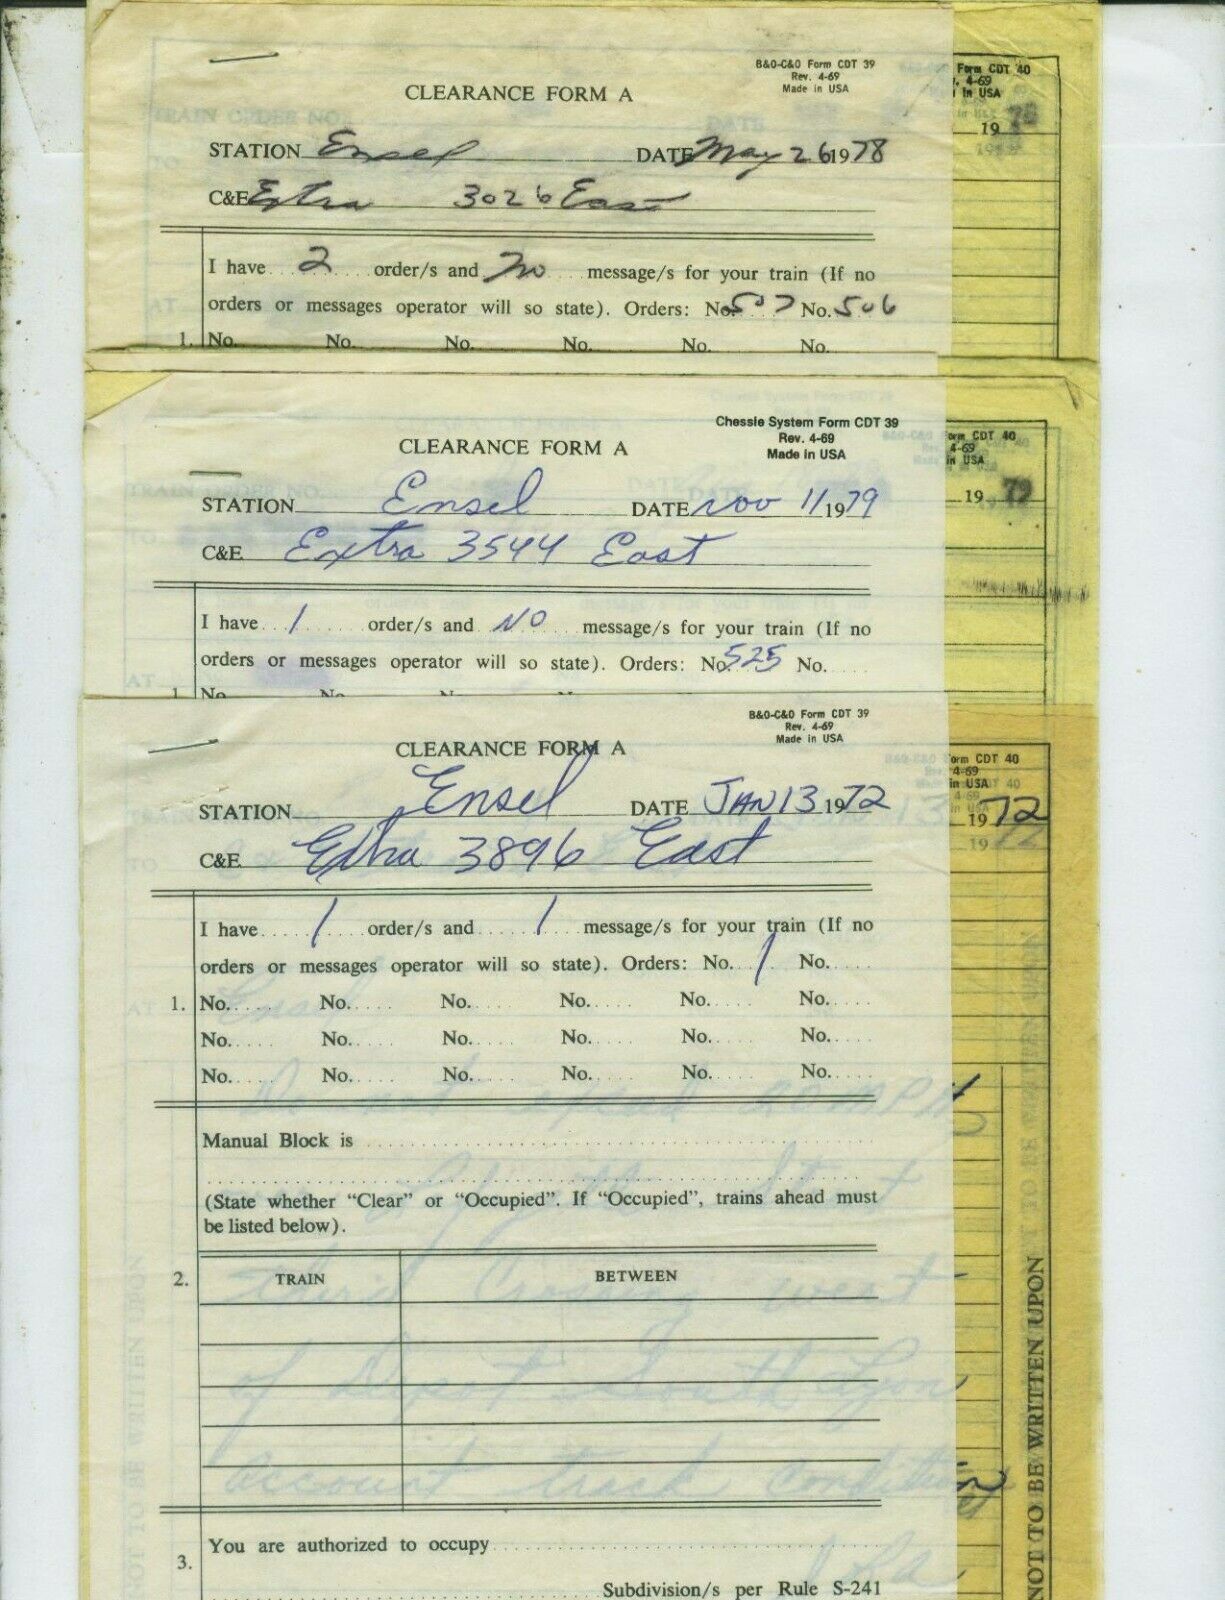 B&O-C&O Form CDT 39
Rev. 4-69
Made in USA
Form CDT 40
4-69
in USA
CLEARANCE FORM A
19 78
STATION Ensel DATE May 26 1978
C&E Extra 3026 East
I have 2 order/s and No message/s for your train (If no
orders or messages operator will so state). Orders: No. 507 No. 506
1. No. No. No. No. No. No.
Chessie System Form CDT 39
Rev. 4-69
Made in USA
Form CDT 40
4-69
in USA
CLEARANCE FORM A
19 79
STATION Ensel DATE Nov 11 1979
C&E Extra 3544 East
I have 1 order/s and No message/s for your train (If no
orders or messages operator will so state). Orders: No. 525 No.
1. No. No.
B&O-C&O Form CDT 39
Rev. 4-69
Made in USA
Form CDT 40
4-69
in USA
CLEARANCE FORM A
19 72
STATION Ensel DATE JAN 13 1972
C&E Extra 3896 East
I have 1 order/s and 1 message/s for your train (If no
orders or messages operator will so state). Orders: No. 1 No.
1. No. No. No. No. No. No.
No. No. No. No. No. No.
No. No. No. No. No. No.
Manual Block is
(State whether "Clear" or "Occupied". If "Occupied", trains ahead must
be listed below).
2. TRAIN BETWEEN
third Crossing west
of Depot South Lyon
account track condition
3. You are authorized to occupy
Subdivision/s per Rule S-241
NOT TO BE WRITTEN UPON
NOT TO BE WRITTEN UPON